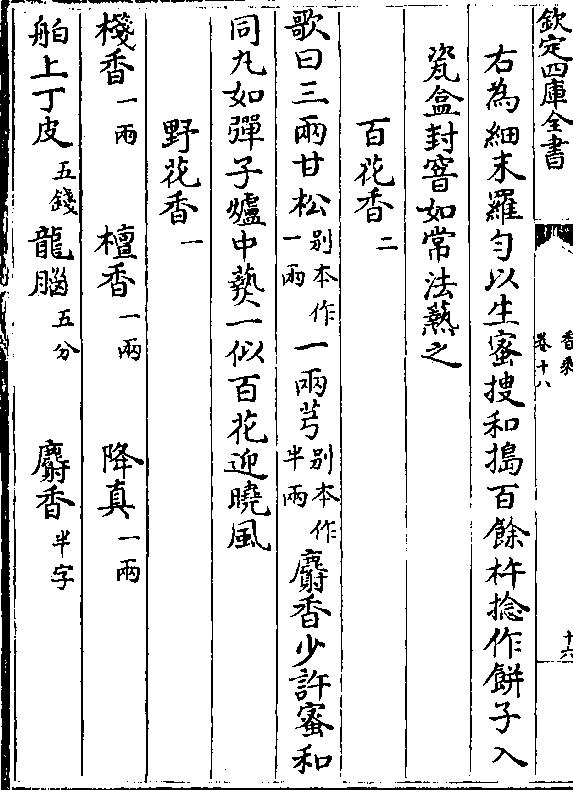 欽定四庫全書
香乘
卷十八
十六
右為細末羅勻以生蜜搜和搗百餘杵捻作餅子入
瓷盒封窨如常法爇之
百花香二
歌曰三兩甘松别本作一兩一兩芎别本作半兩麝香少許蜜和
同丸如彈子爐中爇一似百花迎曉風
野花香一
棧香一兩 檀香一兩 降真一兩
舶上丁皮五錢 龍腦五分 麝香半字